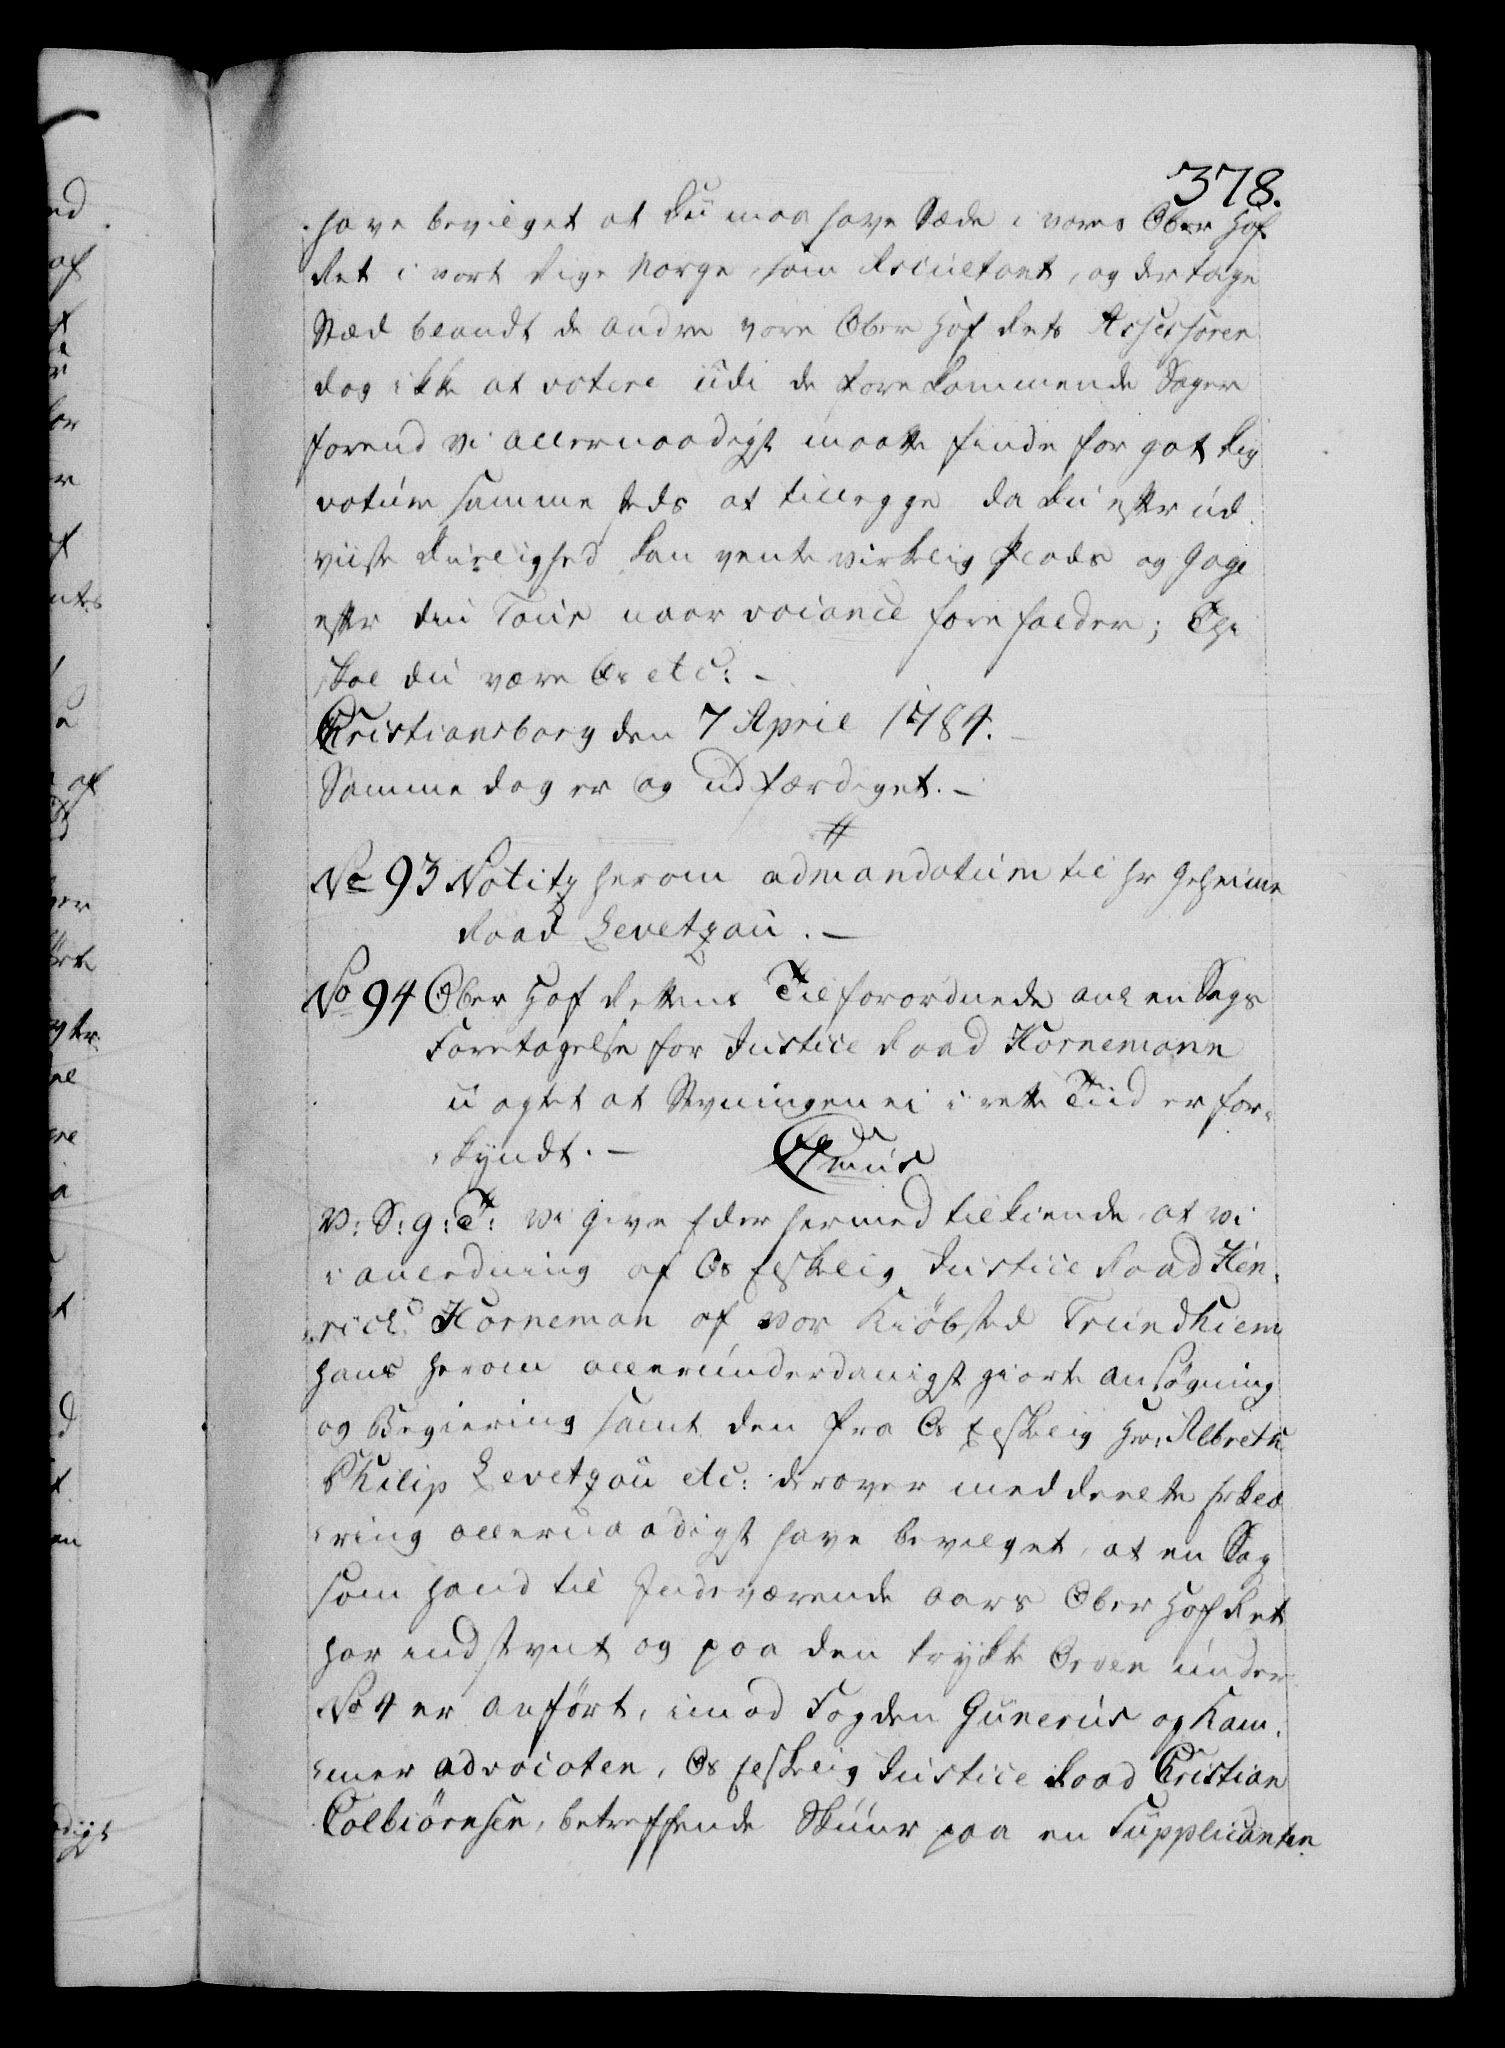 378.
have bevilget at du maa have Sæde i vores Ober Hof
Ret i vort Rige Norge, som Ascultant, og der tage
Stæd blandt de andre vore Ober Hof Rets Assessorer
dog ikke at votere udi de forekommende Sager
forend vi allernaadigst maatte finde for got dig
votum samme steds at tillegge da du efter ud
viiste duelighed kan vente virkelig Plads og Gage
efter din Tour naar vacance forefalder; Thi
skal du være Os etc: -
Christiansborg den 7 April 1784. -
Samme dag er og udfærdiget. -
No 93 Notitz herom ad mandatum til Hr Geheime
Raad Levetzau. -
No 94 Ober Hof Rettens Tilforordnede anl en Sags
Foretagelse for Justice Raad Hornemann
uagtet at Stevningen ei i rette Tiid er for-
kyndt. -
V: S: g: T: Vi give Eder hermed tilkiende, at vi
i anledning af Os Elskelig Justice Raad Hen-
rich Horneman af vor Kiöbsted Trundhiem
hans herom allerunderdanigst giorte Ansøgning
og Begiering samt den fra Os Elskelig Hr: Albreth
Philip Levetzau etc: derover meddeelte Erklæ
ring allernaadigst have bevilget, at en Sag
som hand til Indeværende Aars Ober Hof Ret
har indstevnt og paa den trykte Orden under
No 4 er anført, imod Fogden Gunerus og Kam-
mer advocaten, Os Elskelig Justice Raad Christian
Colbiörnsen, betreffende Skuur paa en Supplicanten